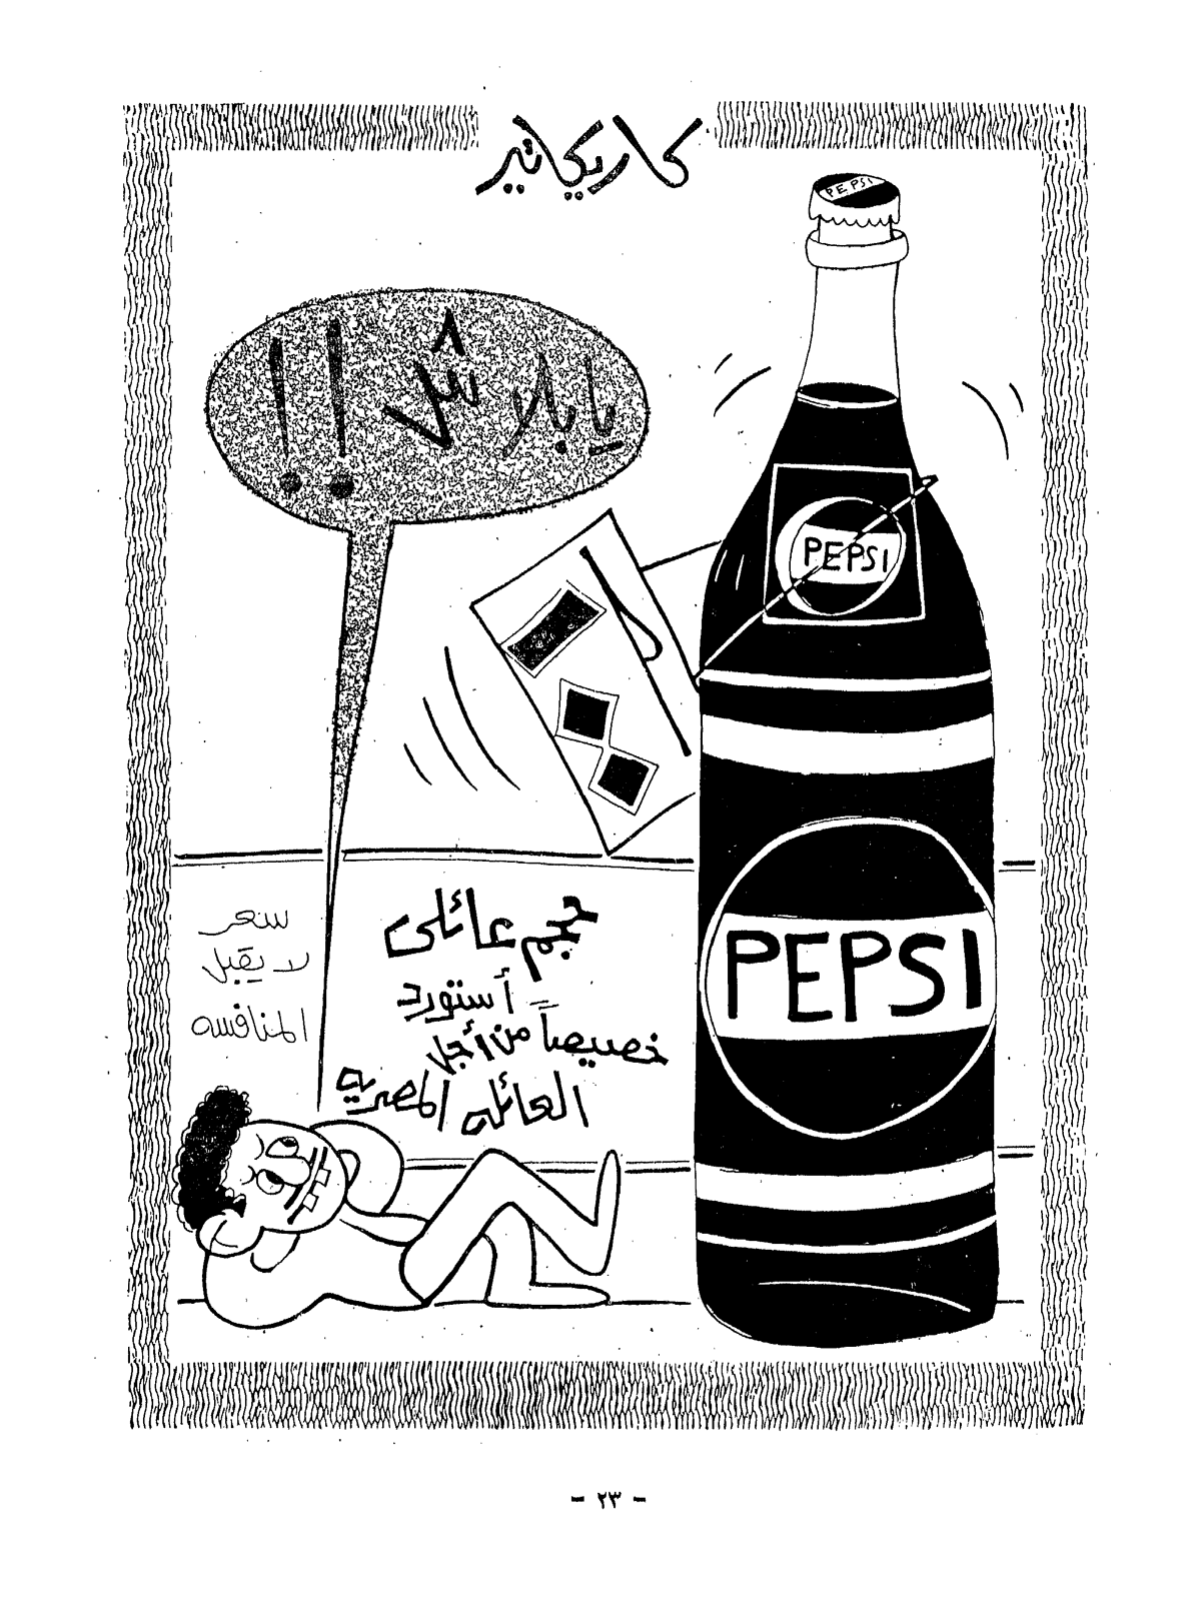 كاريكاتير
PEPSI
يا بلاش !!
PEPSI
حجم عائلى
أستورد
خصيصاً من أجل
العائله المصريه
سعر
لا يقبل
المنافسه
PEPSI
- ٢٣ -